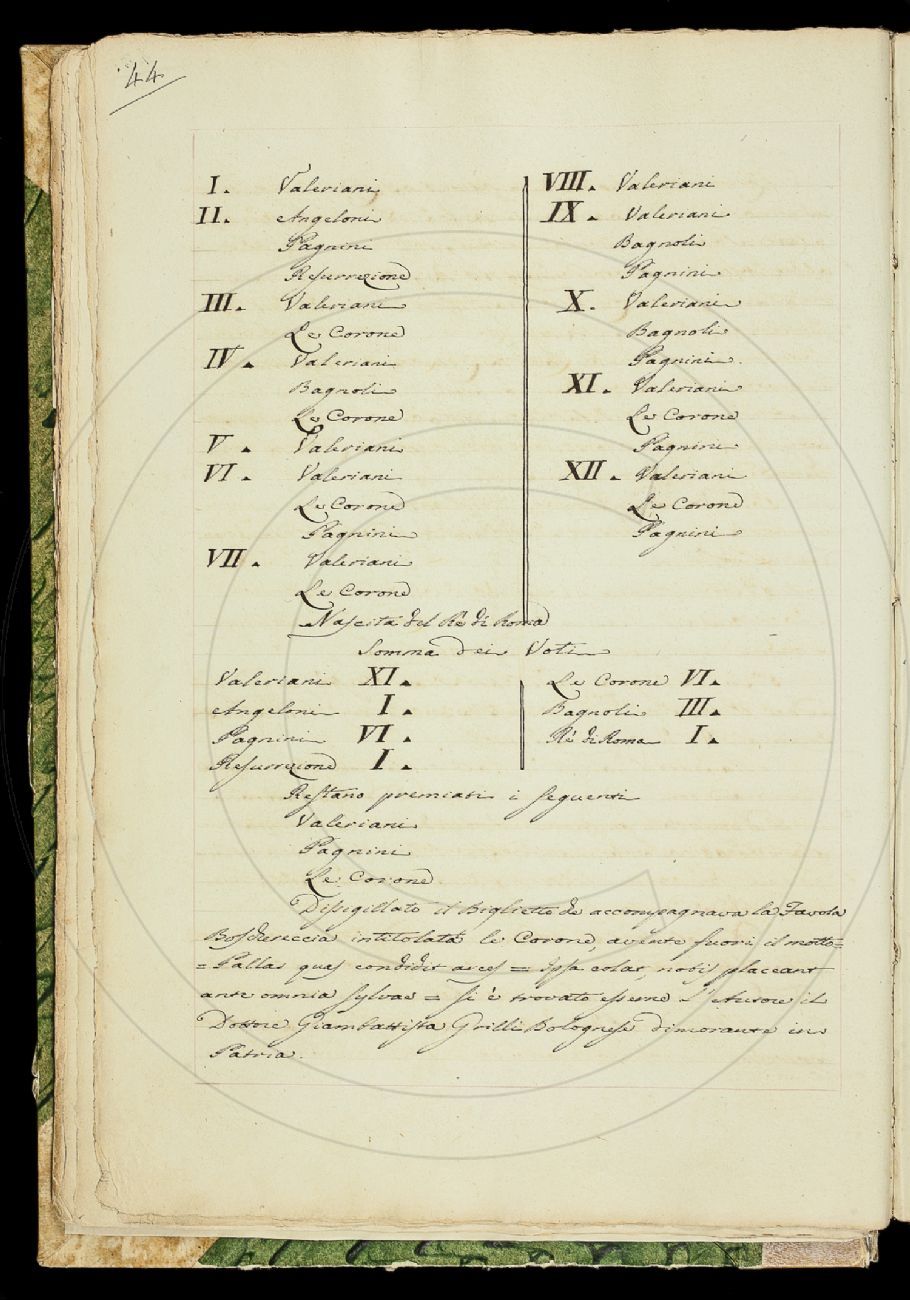 44
I. Valeriani
II. Angeloni
Pagnini
Resurrezione
III. Valeriani
Le Corone
IV. Valeriani
Bagnoli
Le Corone
V. Valeriani
VI. Valeriani
Le Corone
Pagnini
VII. Valeriani
Le Corone
Nascita del Rè di Roma
VIII. Valeriani
IX. Valeriani
Bagnoli
Pagnini
X. Valeriani
Bagnoli
Pagnini.
XI. Valeriani
Le Corone
Pagnini
XII. Valeriani
Le Corone
Pagnini
Somma dei Voti
Valeriani XI.
Angeloni I.
Pagnini VI.
Resurrezione I.
Le Corone VI.
Bagnoli III.
Rè di Roma I.
Restano premiati i seguenti
Valeriani
Pagnini
Le Corone
Disigillato il Biglietto che accompagnava la Favola
Boschereccia intitolata le Corone, avente fuori il motto =
= Pallas quas condidit arces = Ipsa colat, nobis placeant
ante omnia sylvae = si è trovato esserne l'Autore il
Dottore Giambattista Grilli Bolognese dimorante in
Patria.